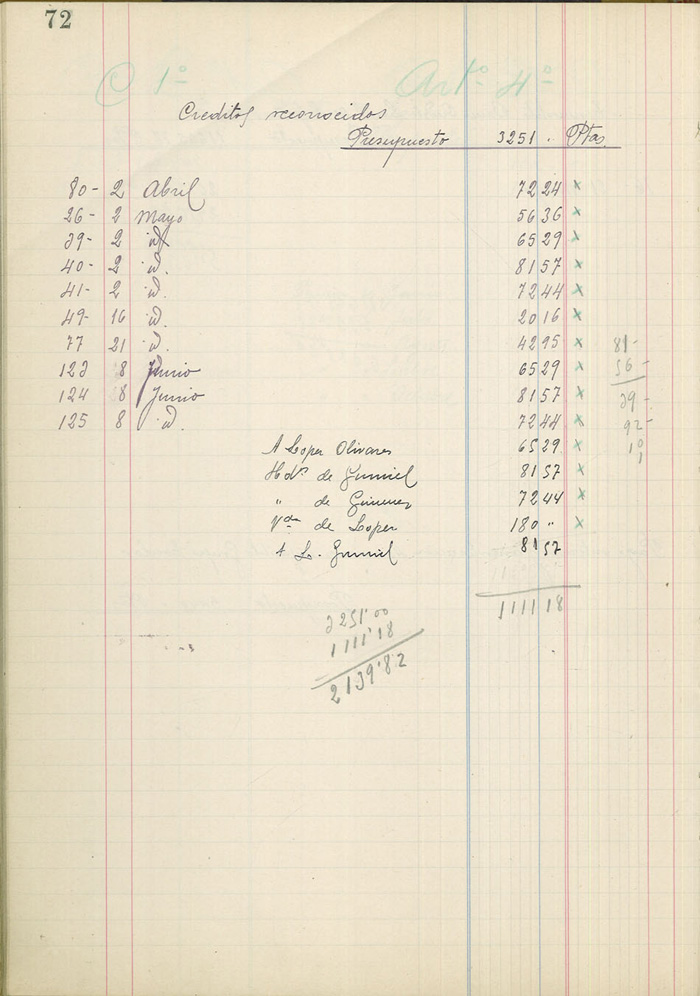 72
C 1º Artº 4º
Creditos reconocidos
Presupuesto 3251. Ptas
80- 2 Abril 72 24 x
26- 2 Mayo 56 36 x
39- 2 id 65 29 x
40- 2 id. 81 57 x
41- 2 id. 72 44 x
49- 16 id. 20 16 x
77 21 id. 42 95 x
81-
123 8 Junio 65 29 x
56-
124 8 Junio 81 57 x
39-
125 8 id. 72 44 x
92-
A Lopez Olivares 65 29 x
1º
1
Hdºs de Jumiel 81 57 x
" de Gimenez 72 44 x
Vda de Lopez 180 " x
A L. Jumiel 81 57
1111 18
3251'00
1111'18
2139'82